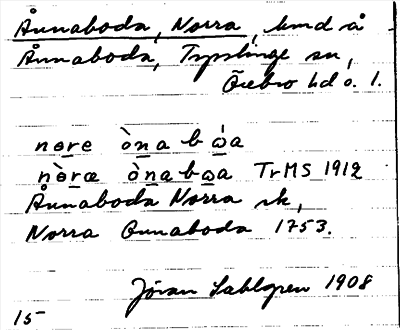 Ånnaboda, Norra, lmd å
Ånnaboda, Tysslinge sn,
Örebro hd ö. l.
nøre òna b ω̇a
nø̀ræ òna bωa TrMS 1912
Ånnaboda Norra sk,
Norra Onnaboda 1753.
Jöran Sahlgren 1908
15